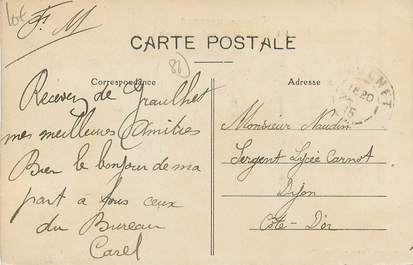 Lot
F. M
81
CARTE POSTALE
Correspondance
Adresse
Recevez de Graulhet
mes meilleures Amitiés
Bien le bonjour de ma
part à tous ceux
du Bureau
Carel
18 20
15
Monsieur Naudin
Sergent Lycée Carnot
Dijon
Côte-D'or